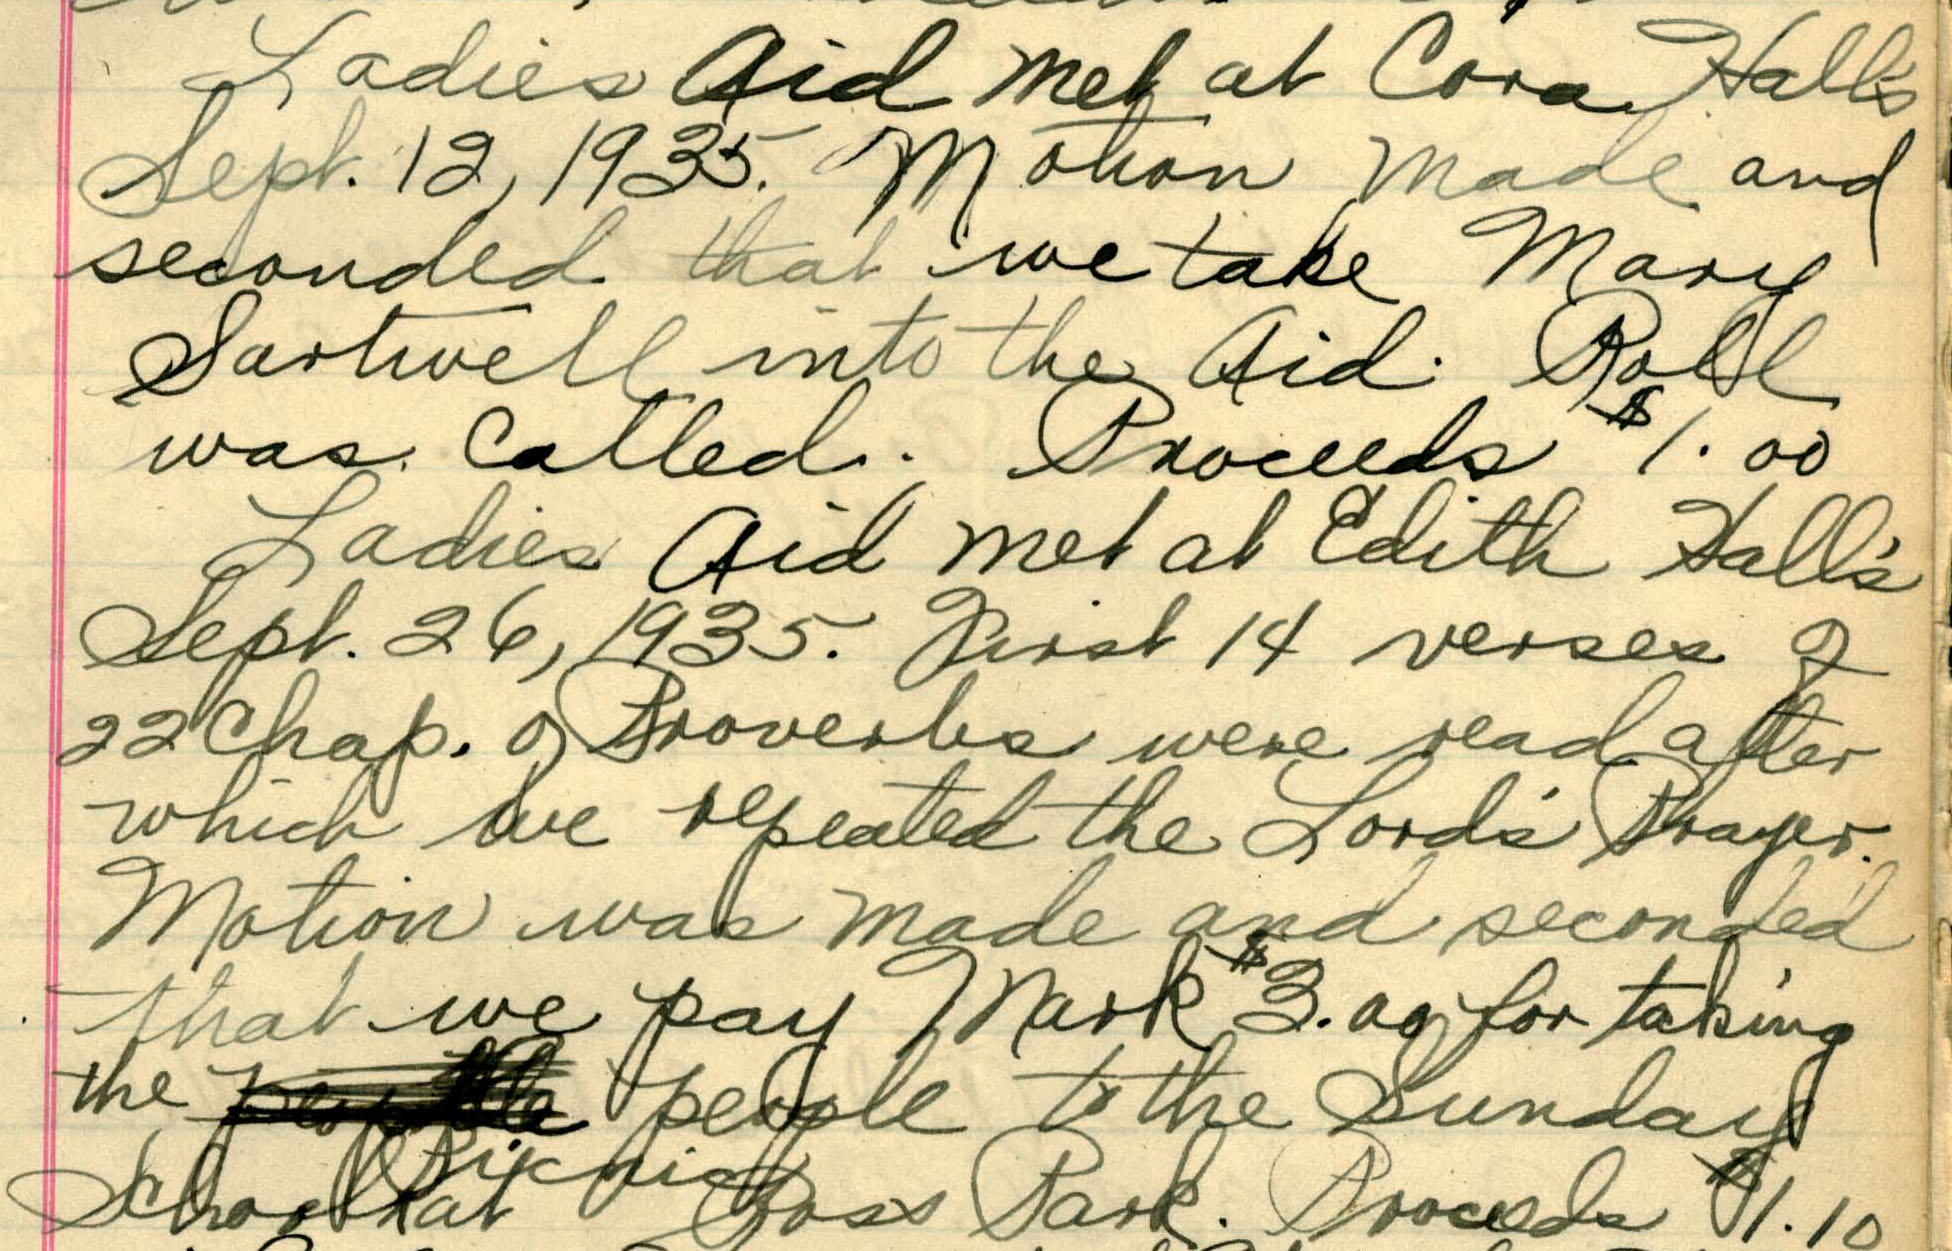 Ladies Aid met at Cora Hall's
Sept. 12, 1935. Motion made and
seconded that we take Mary
Sartwell into the Aid. Roll
was called. Proceeds $1.00
Ladies Aid met at Edith Hall's
Sept. 26, 1935. First 14 verses of
22 Chap. of Proverbs were read after
which we repeated the Lord's Prayer.
Motion was made and seconded
that we pay Mark $3.00 for taking
the people people to the Sunday
School Picnic at Goss Park. Proceeds $1.10